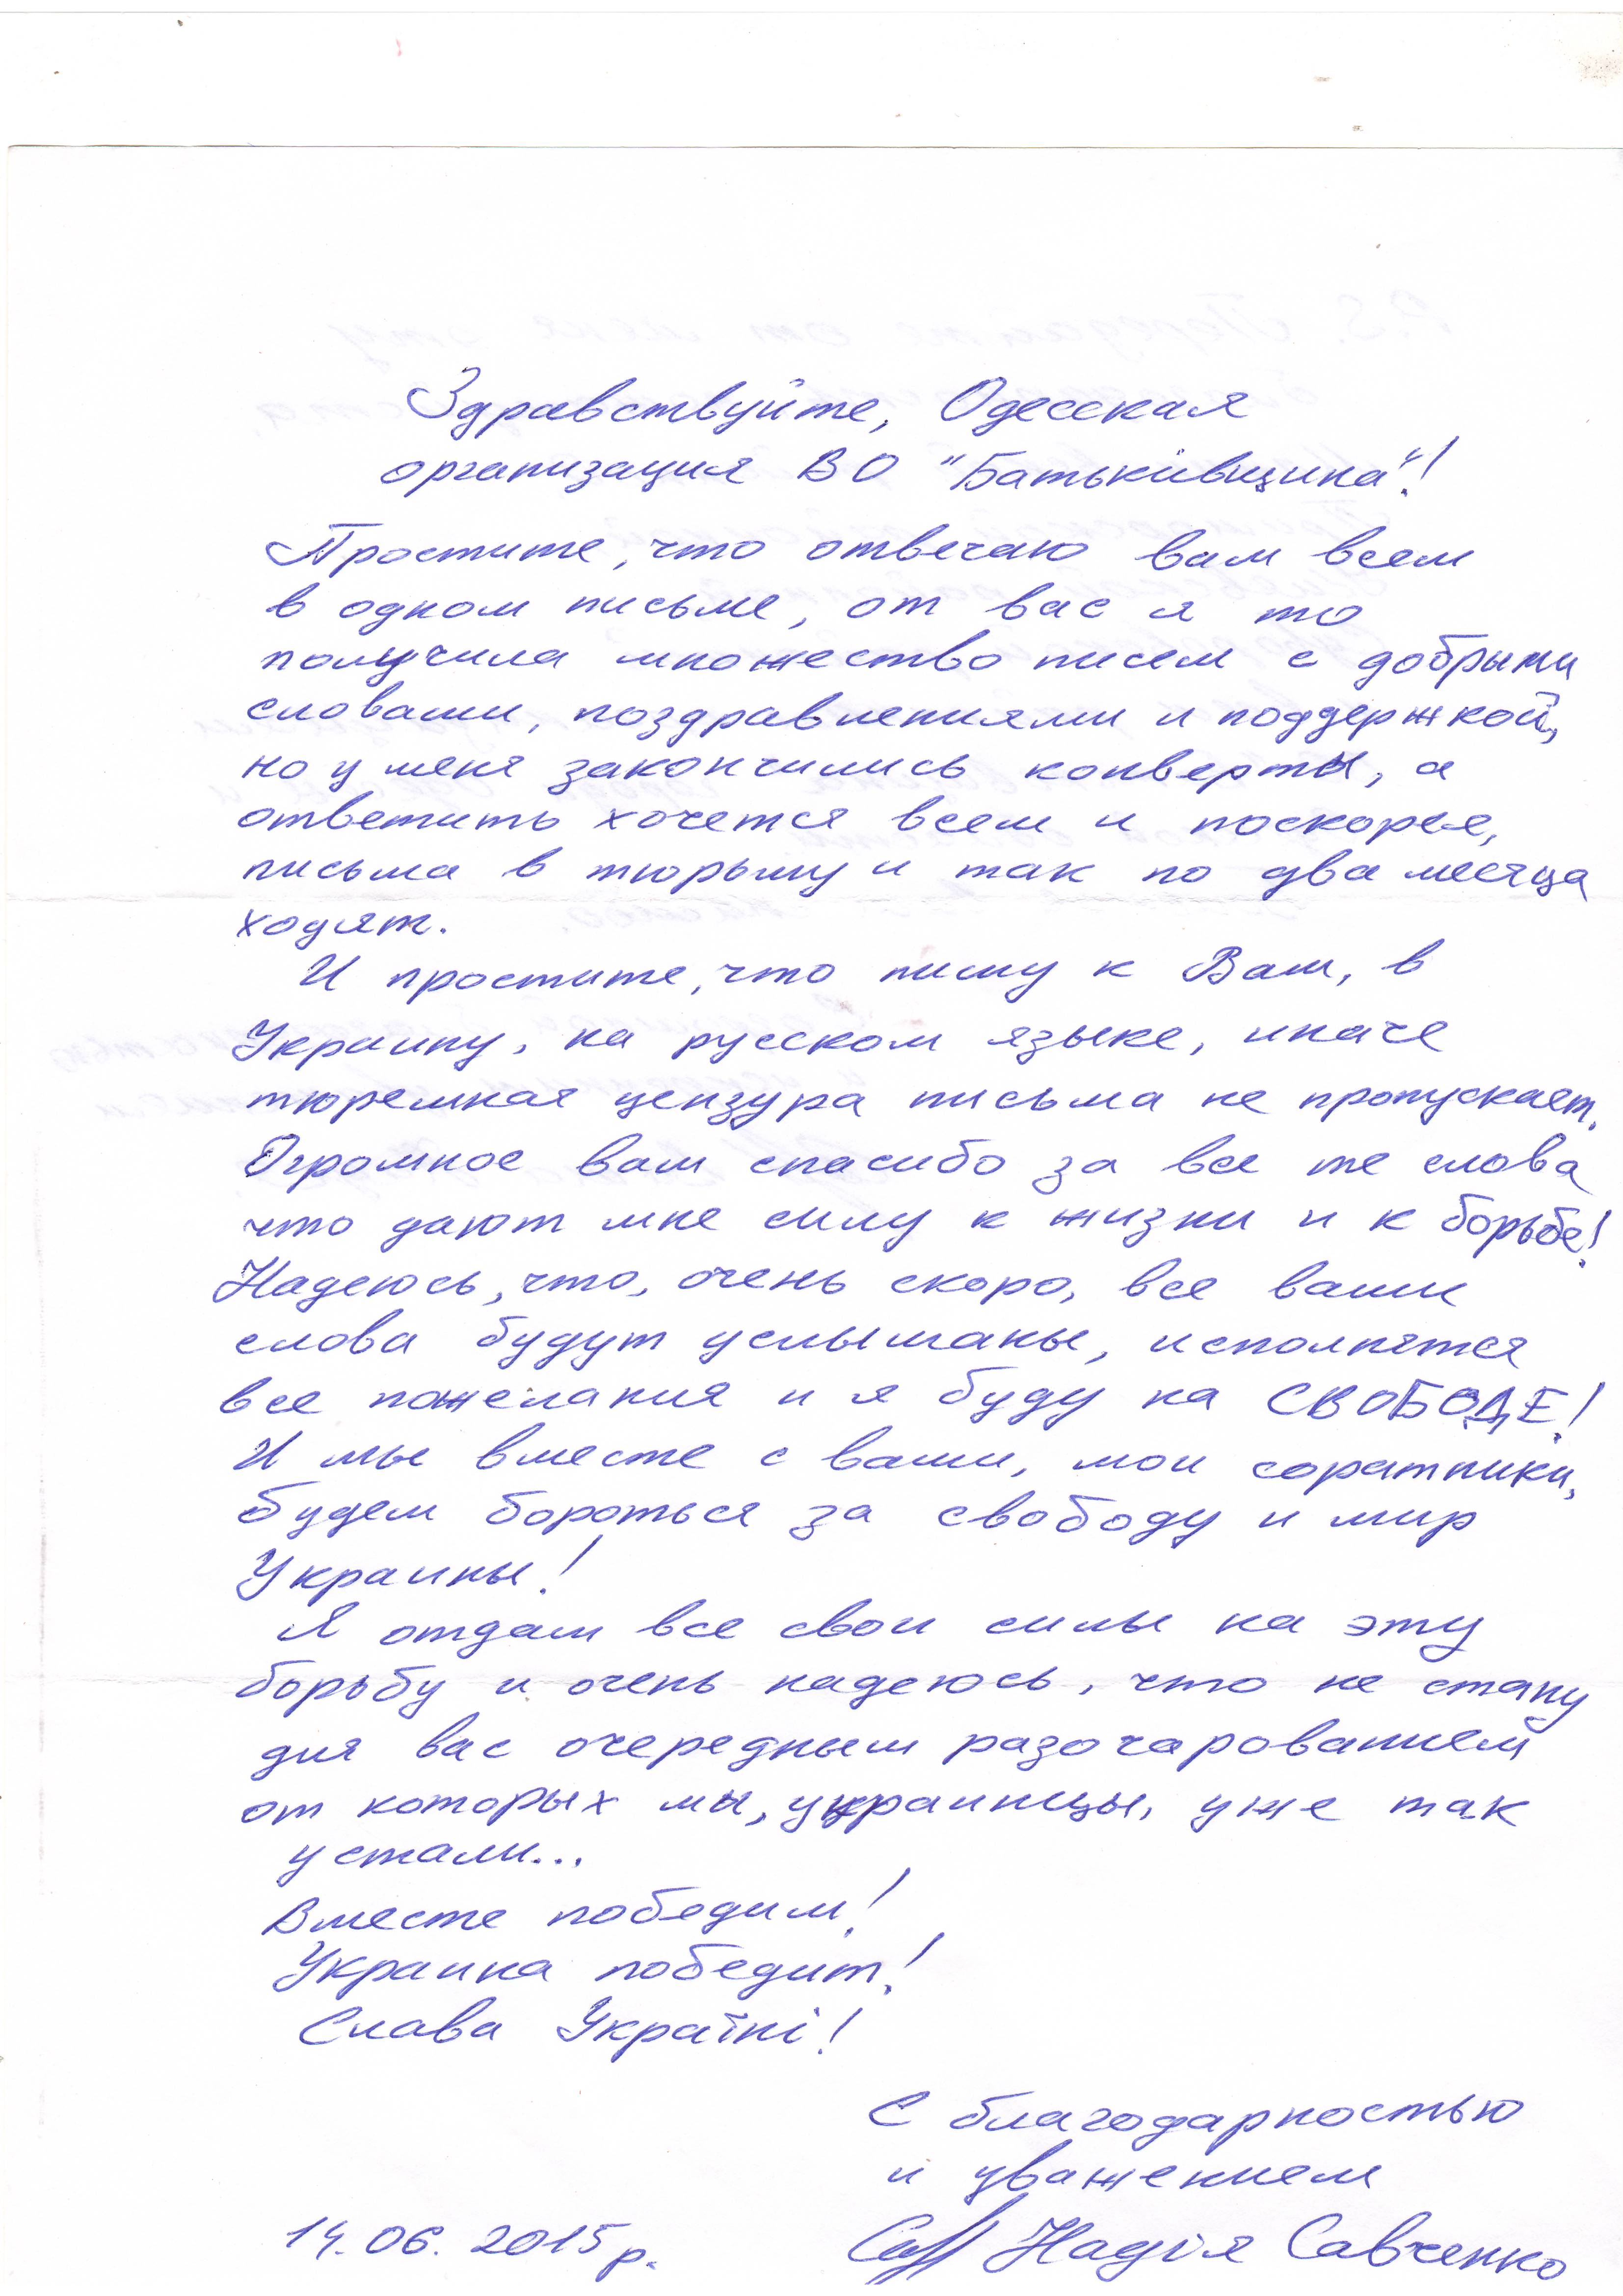 Здравствуйте, Одесская
организация ВО "Батьківщина"!
Простите, что отвечаю вам всем
в одном письме, от вас я то
получила множество писем с добрыми
словами, поздравлениями и поддержкой,
но у меня закончились конверты, а
ответить хочется всем и поскорее,
письма в тюрьму и так по два месяца
ходят.
И простите, что пишу к Вам, в
Украину, на русском языке, иначе
тюремная цензура письма не пропускает.
Огромное вам спасибо за все те слова
что дают мне силу к жизни и к борьбе!
Надеюсь, что, очень скоро, все ваши
слова будут услышаны, исполнятся
все пожелания и я буду на СВОБОДЕ!
И мы вместе с вами, мои соратники,
будем бороться за свободу и мир
Украины!
Я отдам все свои силы на эту
борьбу и очень надеюсь, что не стану
для вас очередным разочарованием
от которых мы, украинцы, уже так
устали...
Вместе победим!
Украина победит!
Слава Україні!
С благодарностью
и уважением
14.06.2015р. Надія Савченко